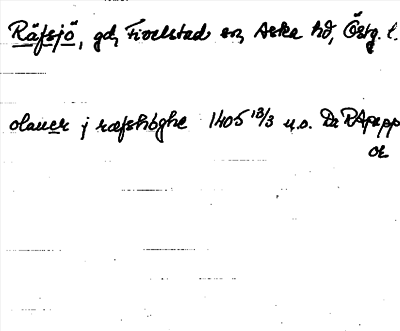 Räfsjö, gd, Fivelstad sn, Aska hd, Östg. l.
olauer j ræfshøghe 1405 13/3 u.o. Da RApapp
OR